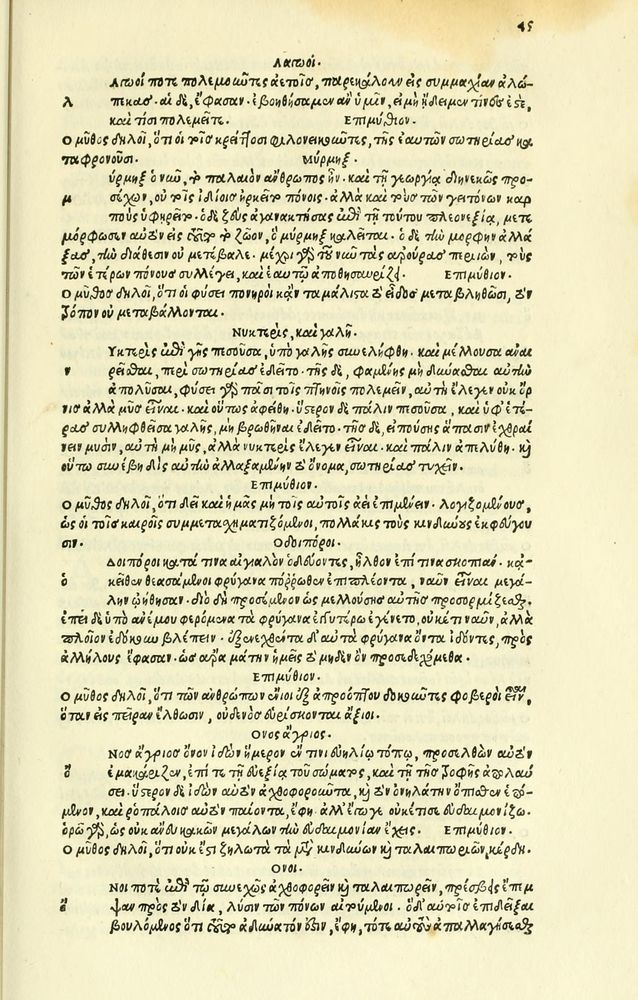 45
Λαγωοί.
Λαγωοί ποτε πολεμοῦντες ἀετοῖς, παρεκάλουν εἰς συμμαχίαν ἀλώ-
λ πεκας. αἱ δὲ, ἔφασαν. ἐβοηθήσαμεν ἂν ὑμῖν, εἰ μὴ ᾔδειμεν τίνες ἐστὲ,
καὶ τίσι πολεμεῖτε. Ἐπιμύθιον.
Ὁ μῦθος δηλοῖ, ὅτι οἱ τοῖς κρείττοσι φιλονεικοῦντες, τῆς ἑαυτῶν σωτηρίας κα
ταφρονοῦσι. Μύρμηξ.
ύρμηξ ὁ νῦν, τὸ παλαιὸν ἄνθρωπος ἦν. καὶ τῇ γεωργίᾳ διηνεκῶς προ-
μ σέχων, οὐ τοῖς ἰδίοις ἠρκεῖτο πόνοις. ἀλλὰ καὶ τοὺς τῶν γειτόνων καρ
ποὺς ὑφῃρεῖτο. ὁ δὲ ζεὺς ἀγανακτήσας ἐπὶ τῇ τούτου πλεονεξίᾳ, μετε
μόρφωσεν αὐτὸν εἰς τοῦτο τὸ ζῶον, ὃ μύρμηξ καλεῖται. ὁ δὲ τὴν μορφὴν ἀλλά
ξας, τὴν διάθεσιν οὐ μετέβαλε. μέχρι γὰρ τοῦ νῦν τὰς ἀρούρας περιιὼν, τοὺς
τῶν ἑτέρων πόνους συλλέγει, καὶ ἑαυτῷ ἀποθησαυρίζει. Ἐπιμύθιον.
Ὁ μῦθος δηλοῖ, ὅτι οἱ φύσει πονηροὶ κἂν τὰ μάλιστα τὸ εἶδος μεταβληθῶσι, τὸν
τρόπον οὐ μεταβάλλονται.
Νυκτερὶς, καὶ γαλῆ.
Υκτερὶς ἐπὶ γῆς πεσοῦσα, ὑπὸ γαλῆς συνελήφθη. καὶ μέλλουσα ἀναι
ν ρεῖσθαι, περὶ σωτηρίας ἐδεῖτο. τῆς δὲ, φαμένης μὴ δύνασθαι αὐτὴν
ἀπολῦσαι, φύσει γὰρ πᾶσι τοῖς πτηνοῖς πολεμεῖν, αὐτὴ ἔλεγεν οὐκ ὄρ
νις ἀλλὰ μῦς εἶναι. καὶ οὕτως ἀφείθη. ὕστερον δὲ πάλιν πεσοῦσα, καὶ ὑφ' ἑτέ-
ρας συλληφθεῖσα γαλῆς, μὴ βρωθῆναι ἐδεῖτο. τῆς δὲ, εἰπούσης ἅπασιν ἐχθραί
νειν μυσὶν, αὐτὴ μὴ μῦς, ἀλλὰ νυκτερὶς ἔλεγεν εἶναι. καὶ πάλιν ἀπελύθη. καὶ
οὕτω συνέβη δὶς αὐτὴν ἀλλαξαμένην τὸ ὄνομα, σωτηρίας τυχεῖν.
Ἐπιμύθιον.
Ὁ μῦθος δηλοῖ, ὅτι δεῖ καὶ ἡμᾶς μὴ τοῖς αὐτοῖς ἀεὶ ἐπιμένειν. λογιζομένους,
ὡς οἱ τοῖς καιροῖς συμμετασχηματιζόμενοι, πολλάκις τοὺς κινδύνους ἐκφεύγου
σιν. Ὁδοιπόροι.
Δοιπόροι κατά τινα αἰγιαλὸν ὁδεύοντες, ἦλθον ἐπί τινα σκοπιάν. κἀ-
ὁ κεῖθεν θεασάμενοι φρύγανα πόῤῥωθεν ἐπιπλέοντα, ναῦν εἶναι μεγά-
λην ᾠήθησαν. διὸ δὴ προσέμενον ὡς μελλούσης αὐτῆς προσορμίζεσθαι.
ἐπεὶ δὲ ὑπὸ ἀνέμου φερόμενα τὰ φρύγανα ἐγγυτέρω ἐγένετο, οὐκέτι ναῦν, ἀλλὰ
πλοῖον ἐδόκουν βλέπειν. ἐξενεχθέντα δ' αὐτὰ φρύγανα ὄντα ἰδόντες, πρὸς
ἀλλήλους ἔφασαν. ὡς ἄρα μάτην ἡμεῖς τὸ μηδὲν ὂν προσεδεχόμεθα.
Ἐπιμύθιον.
Ὁ μῦθος δηλοῖ, ὅτι τῶν ἀνθρώπων ἔνιοι ἐξ ἀπροόπτου δοκοῦντες φοβεροὶ εἶναι,
ὅταν εἰς πεῖραν ἔλθωσιν, οὐδενὸς εὑρίσκονται ἄξιοι.
Ὄνος ἄγριος.
Νος ἄγριος ὄνον ἰδὼν ἥμερον ἔν τινι εὐηλίῳ τόπῳ, προσελθὼν αὐτὸν
ὅ ἐμακάριζεν, ἐπί τε τῇ εὐεξίᾳ τοῦ σώματος, καὶ τῇ τῆς τροφῆς ἀπολαύ
σει. ὕστερον δὲ ἰδὼν αὐτὸν ἀχθοφοροῦντα, καὶ τὸν ὀνηλάτην ὄπισθεν ἑπό-
μενον, καὶ ῥοπάλοις αὐτὸν παίοντα, ἔφη. ἀλλ' ἔγωγε οὐκέτι σε εὐδαιμονίζω.
ὁρῶ γὰρ, ὡς οὐκ ἄνευ κακῶν μεγάλων τὴν εὐδαιμονίαν ἔχεις. Ἐπιμύθιον.
Ὁ μῦθος δηλοῖ, ὅτι οὐκ ἔστι ζηλωτὰ τὰ μετὰ κινδύνων καὶ ταλαιπωριῶν, κέρδη.
Ὄνοι.
Νοι ποτὲ ἐπὶ τῷ συνεχῶς ἀχθοφορεῖν καὶ ταλαιπωρεῖν, πρέσβεις ἔπεμ
ὅ ψαν πρὸς τὸν δία, λύσιν τῶν πόνων αἰτούμενοι. ὁ δ' αὐτοῖς ἐπιδεῖξαι
βουλόμενος ὅτι τοῦτο ἀδύνατόν ἐστιν, ἔφη, τότε αὐτοὺς ἀπαλλαγήσεσθαι